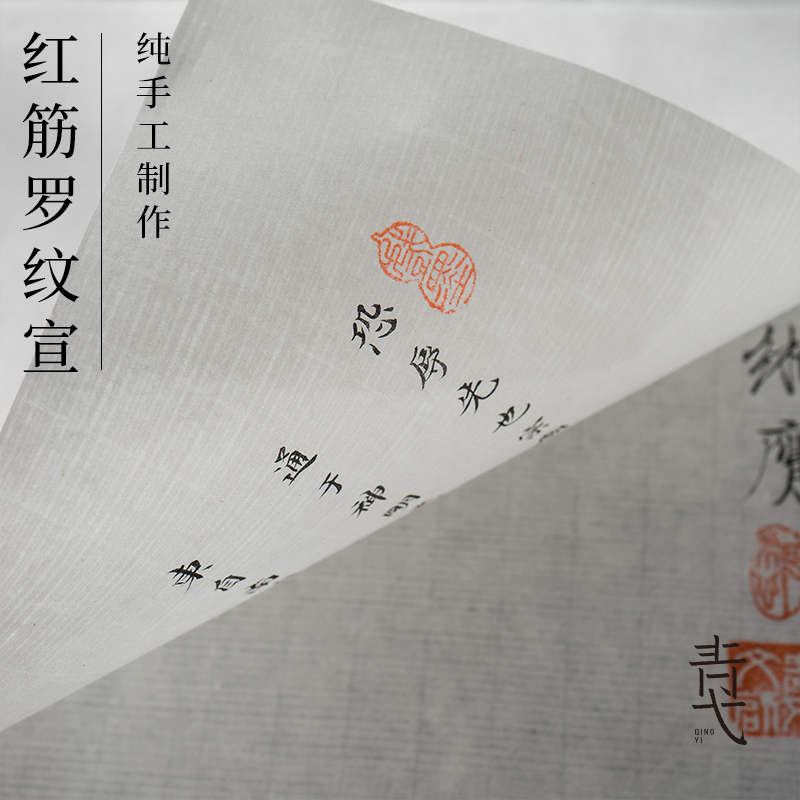 红筋罗纹宣
纯手工制作
恐辱先也宗
通于神明
東自南
青弋
QING
YI